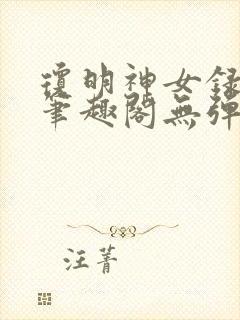 瓊明神女録
筆趣閣無彈
汪菁